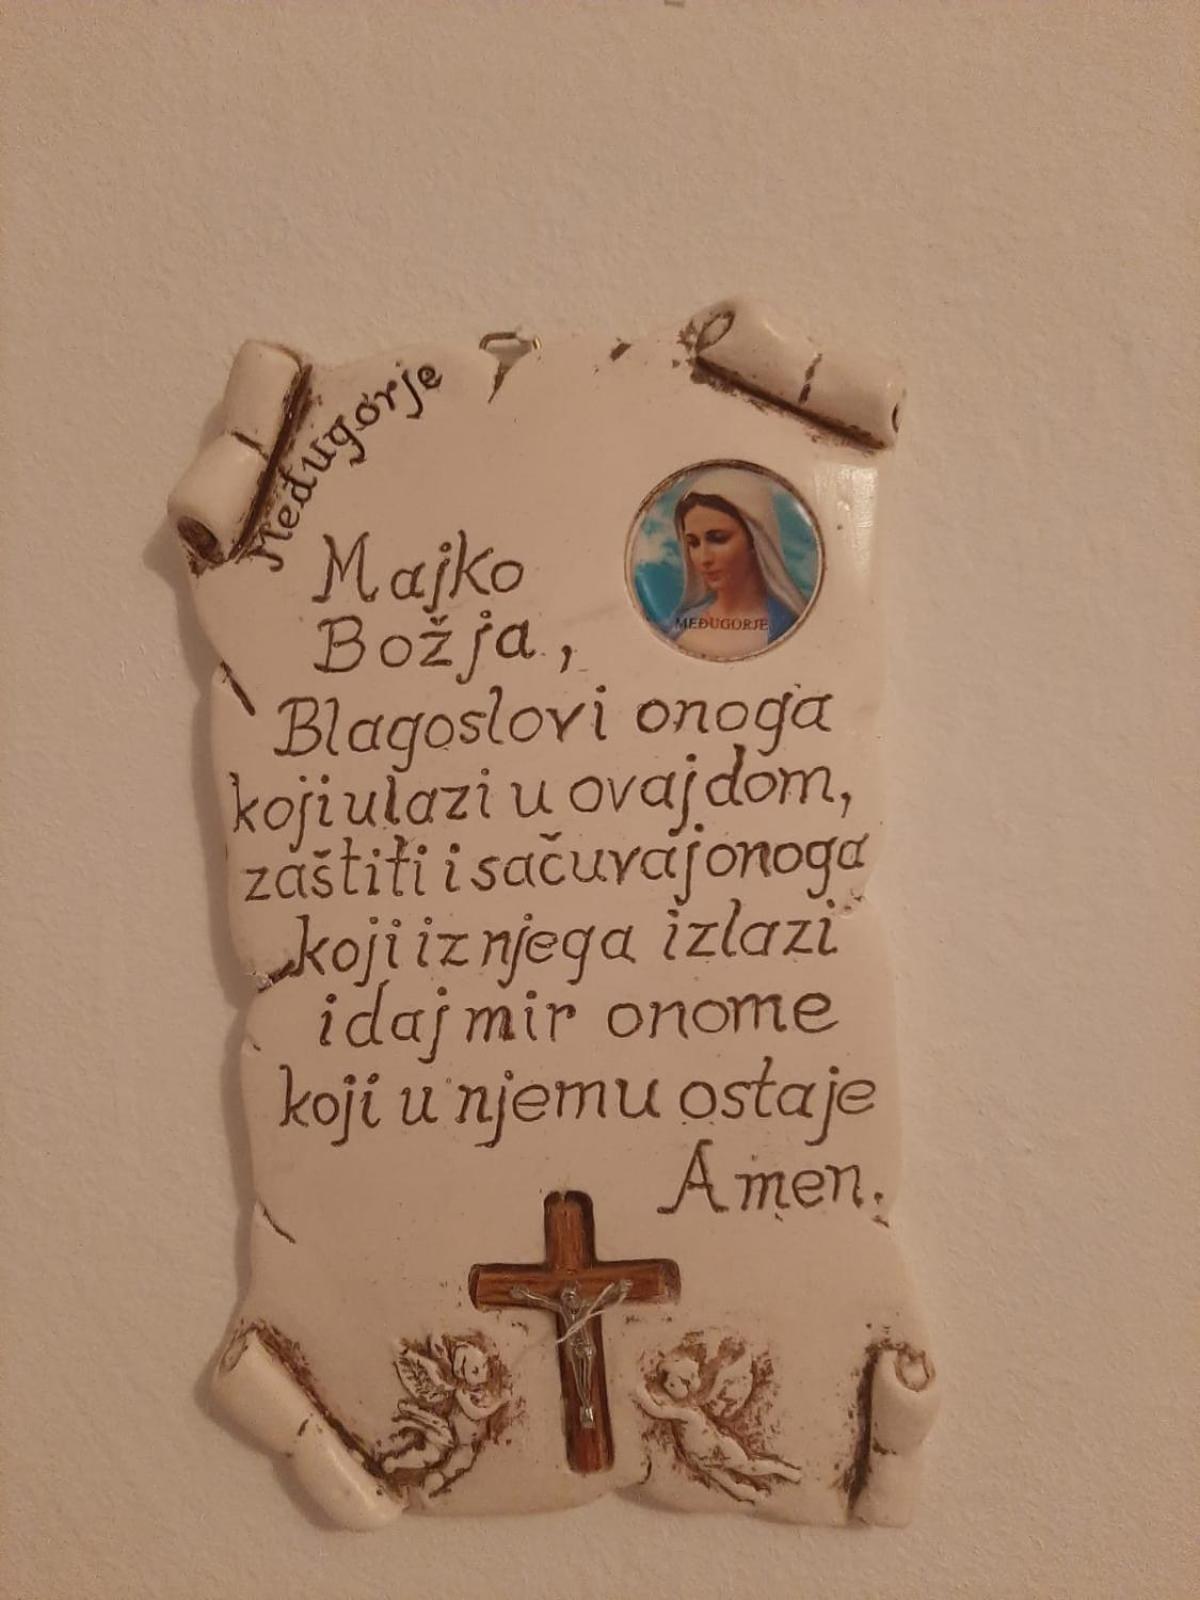 Međugorje
MEĐUGORJE
Majko
Božja,
Blagoslovi onoga
koji ulazi u ovaj dom,
zaštiti i sačuvaj onoga
koji iz njega izlazi
i daj mir onome
koji u njemu ostaje
Amen.